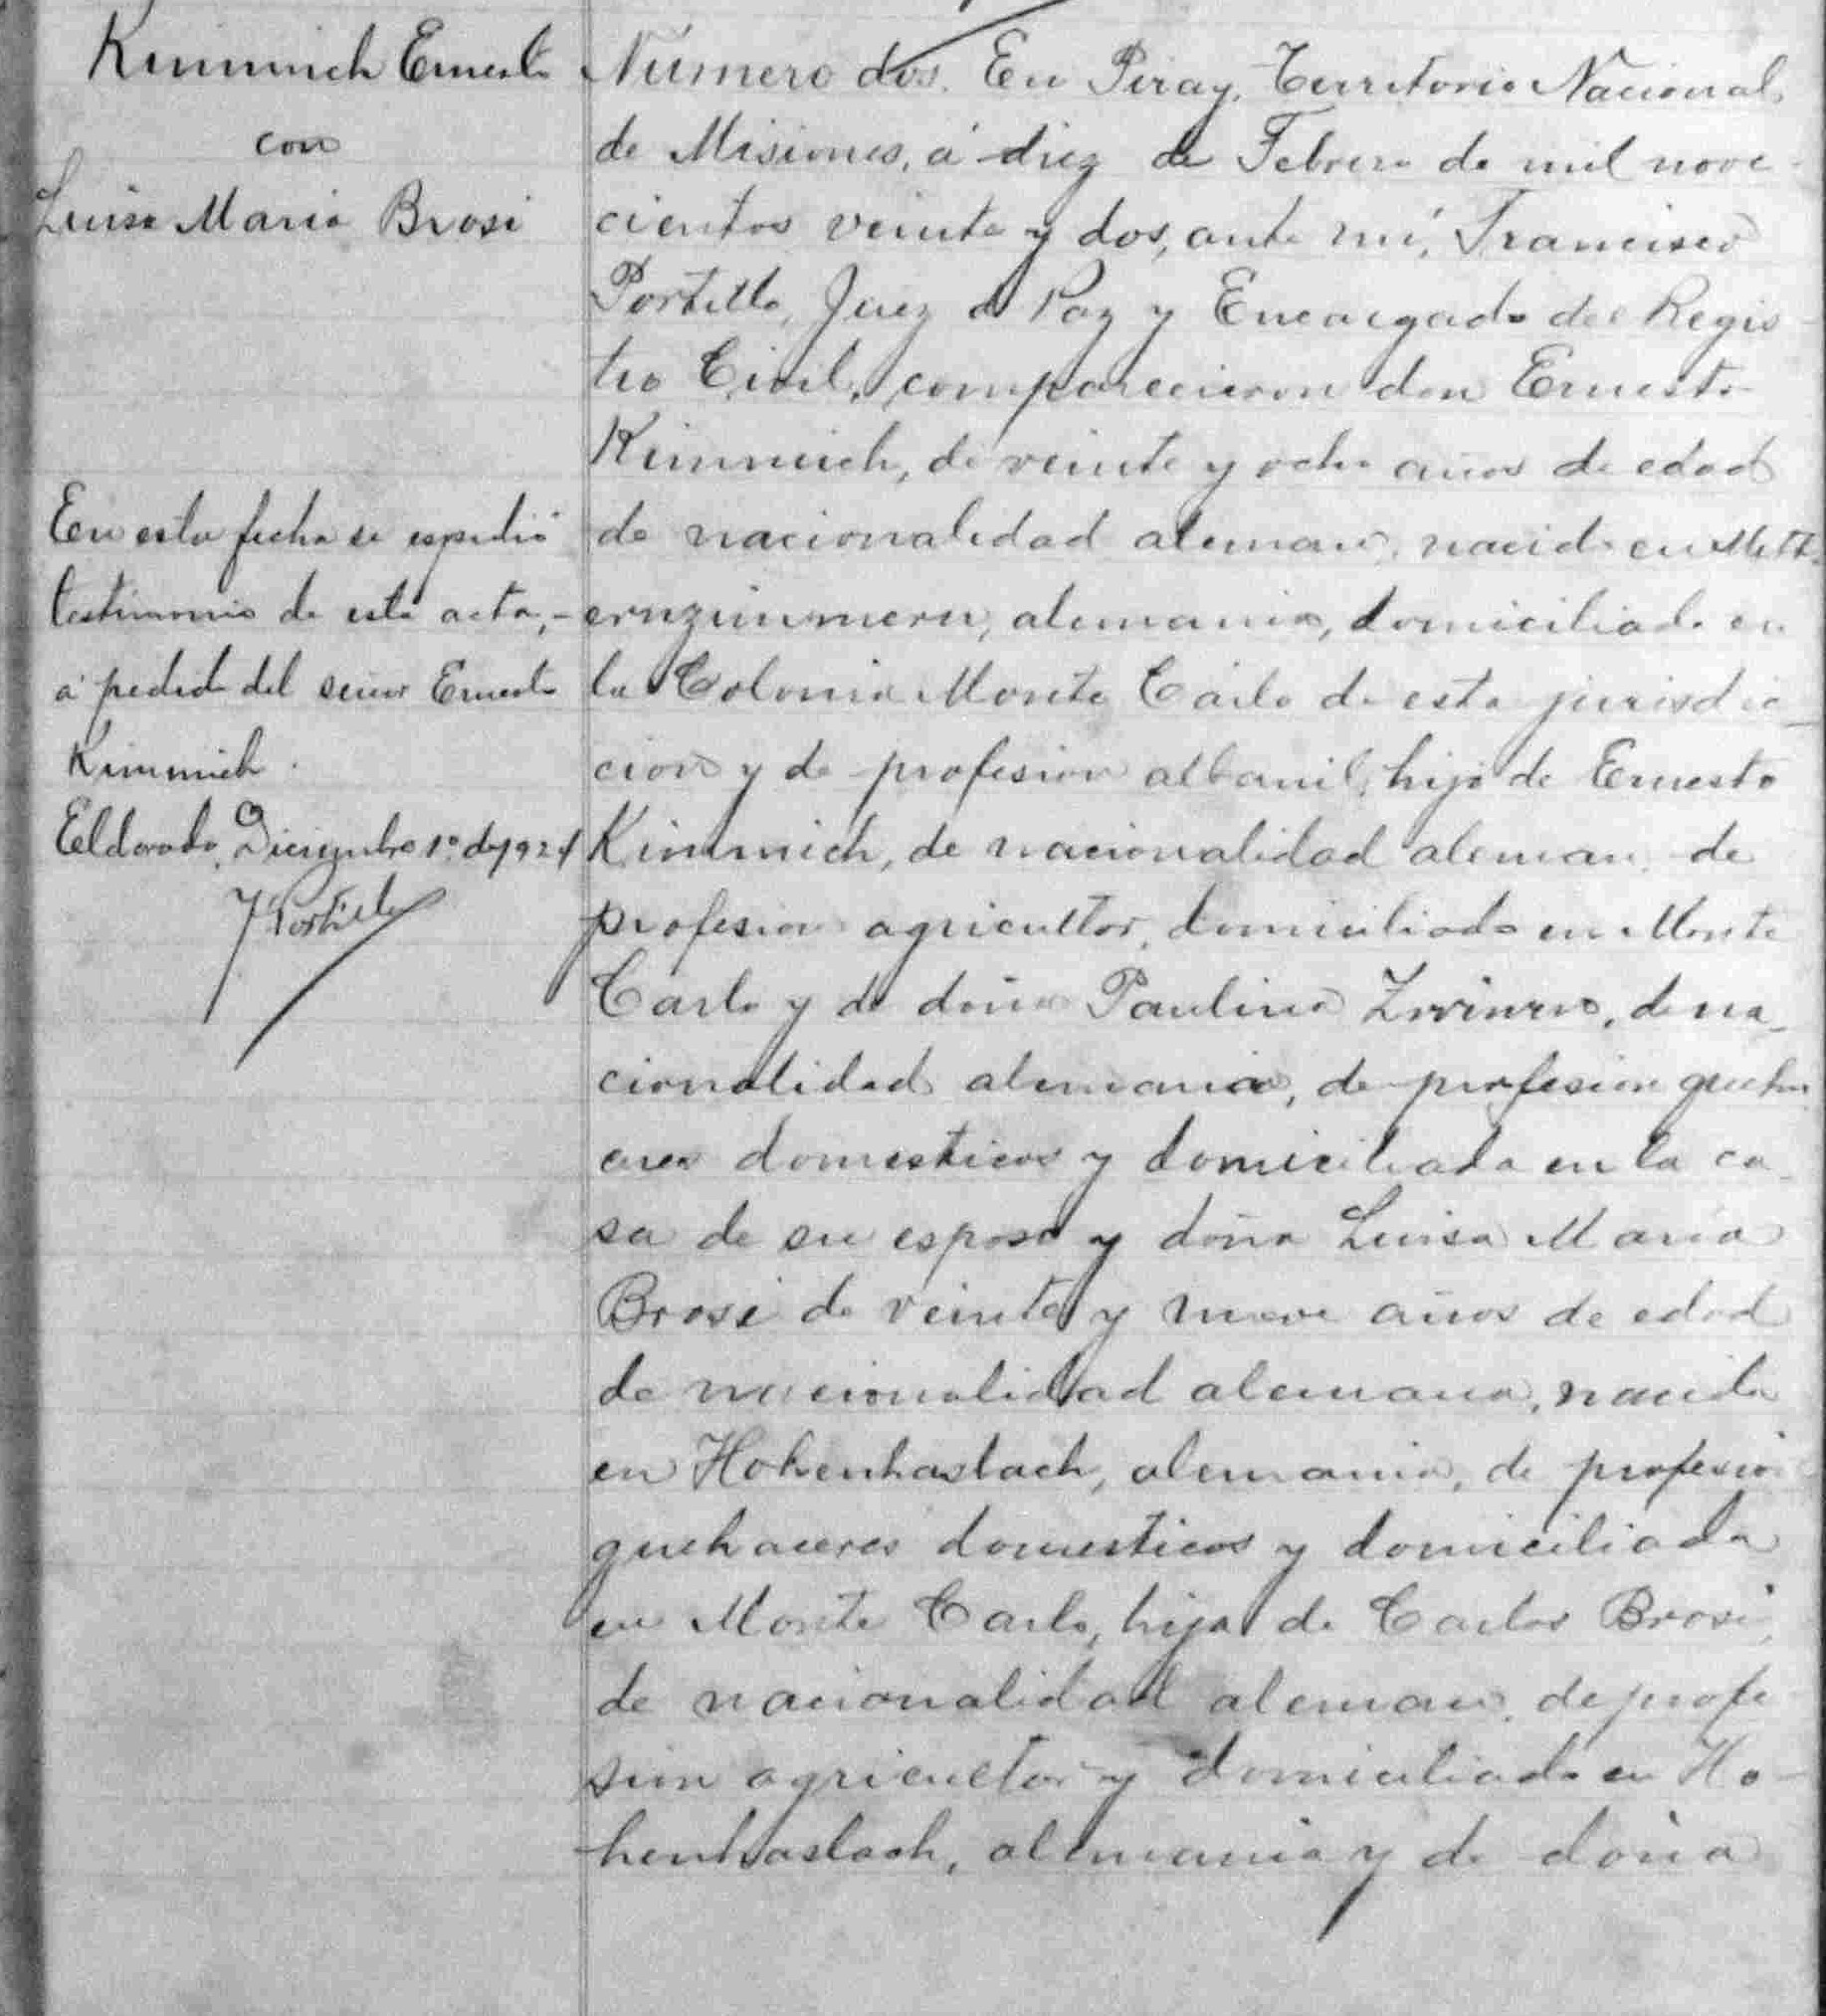 Kimmich Ernesto
con
Luisa Maria Brosi
En esta fecha se espidió
testimonio de esta acta,-
á pedido del señor Ernesto
Kimmich.
Eldorado, Diciembre 1º de 1924
F Portillo
Número dos. En Piray, Territorio Nacional
de Misiones, á diez de Febrero de mil nove-
cientos veinte y dos, ante mí, Francisco
Portillo, Juez de Paz y Encargado del Regis-
tro Civil, comparecieron don Ernesto
Kimmich, de veinte y ocho años de edad
de nacionalidad aleman, nacido en Mett-
ernzimmern, alemania, domiciliado en
la Colonia Monte Carlo de esta jurisdic-
cion y de profesion albanil, hijo de Ernesto
Kimmich, de nacionalidad aleman de
profesion agricultor, domiciliado en Monte
Carlo y de doña Paulina, de na-
cionalidad alemania, de profesion queha
ceres domesticos y domiciliada en la ca-
sa de su esposo y doña Luisa Maria
Brosi de veinte y nueve años de edad
de nacionalidad alemana, nacida
en Hohenhaslach, alemania, de profesion
quehaceres domesticos y domiciliada
en Monte Carlo, hija de Carlos Brosi,
de nacionalidad aleman, de profe-
sion agricultor y domiciliado en Ho-
henhaslach, alemania y de doña